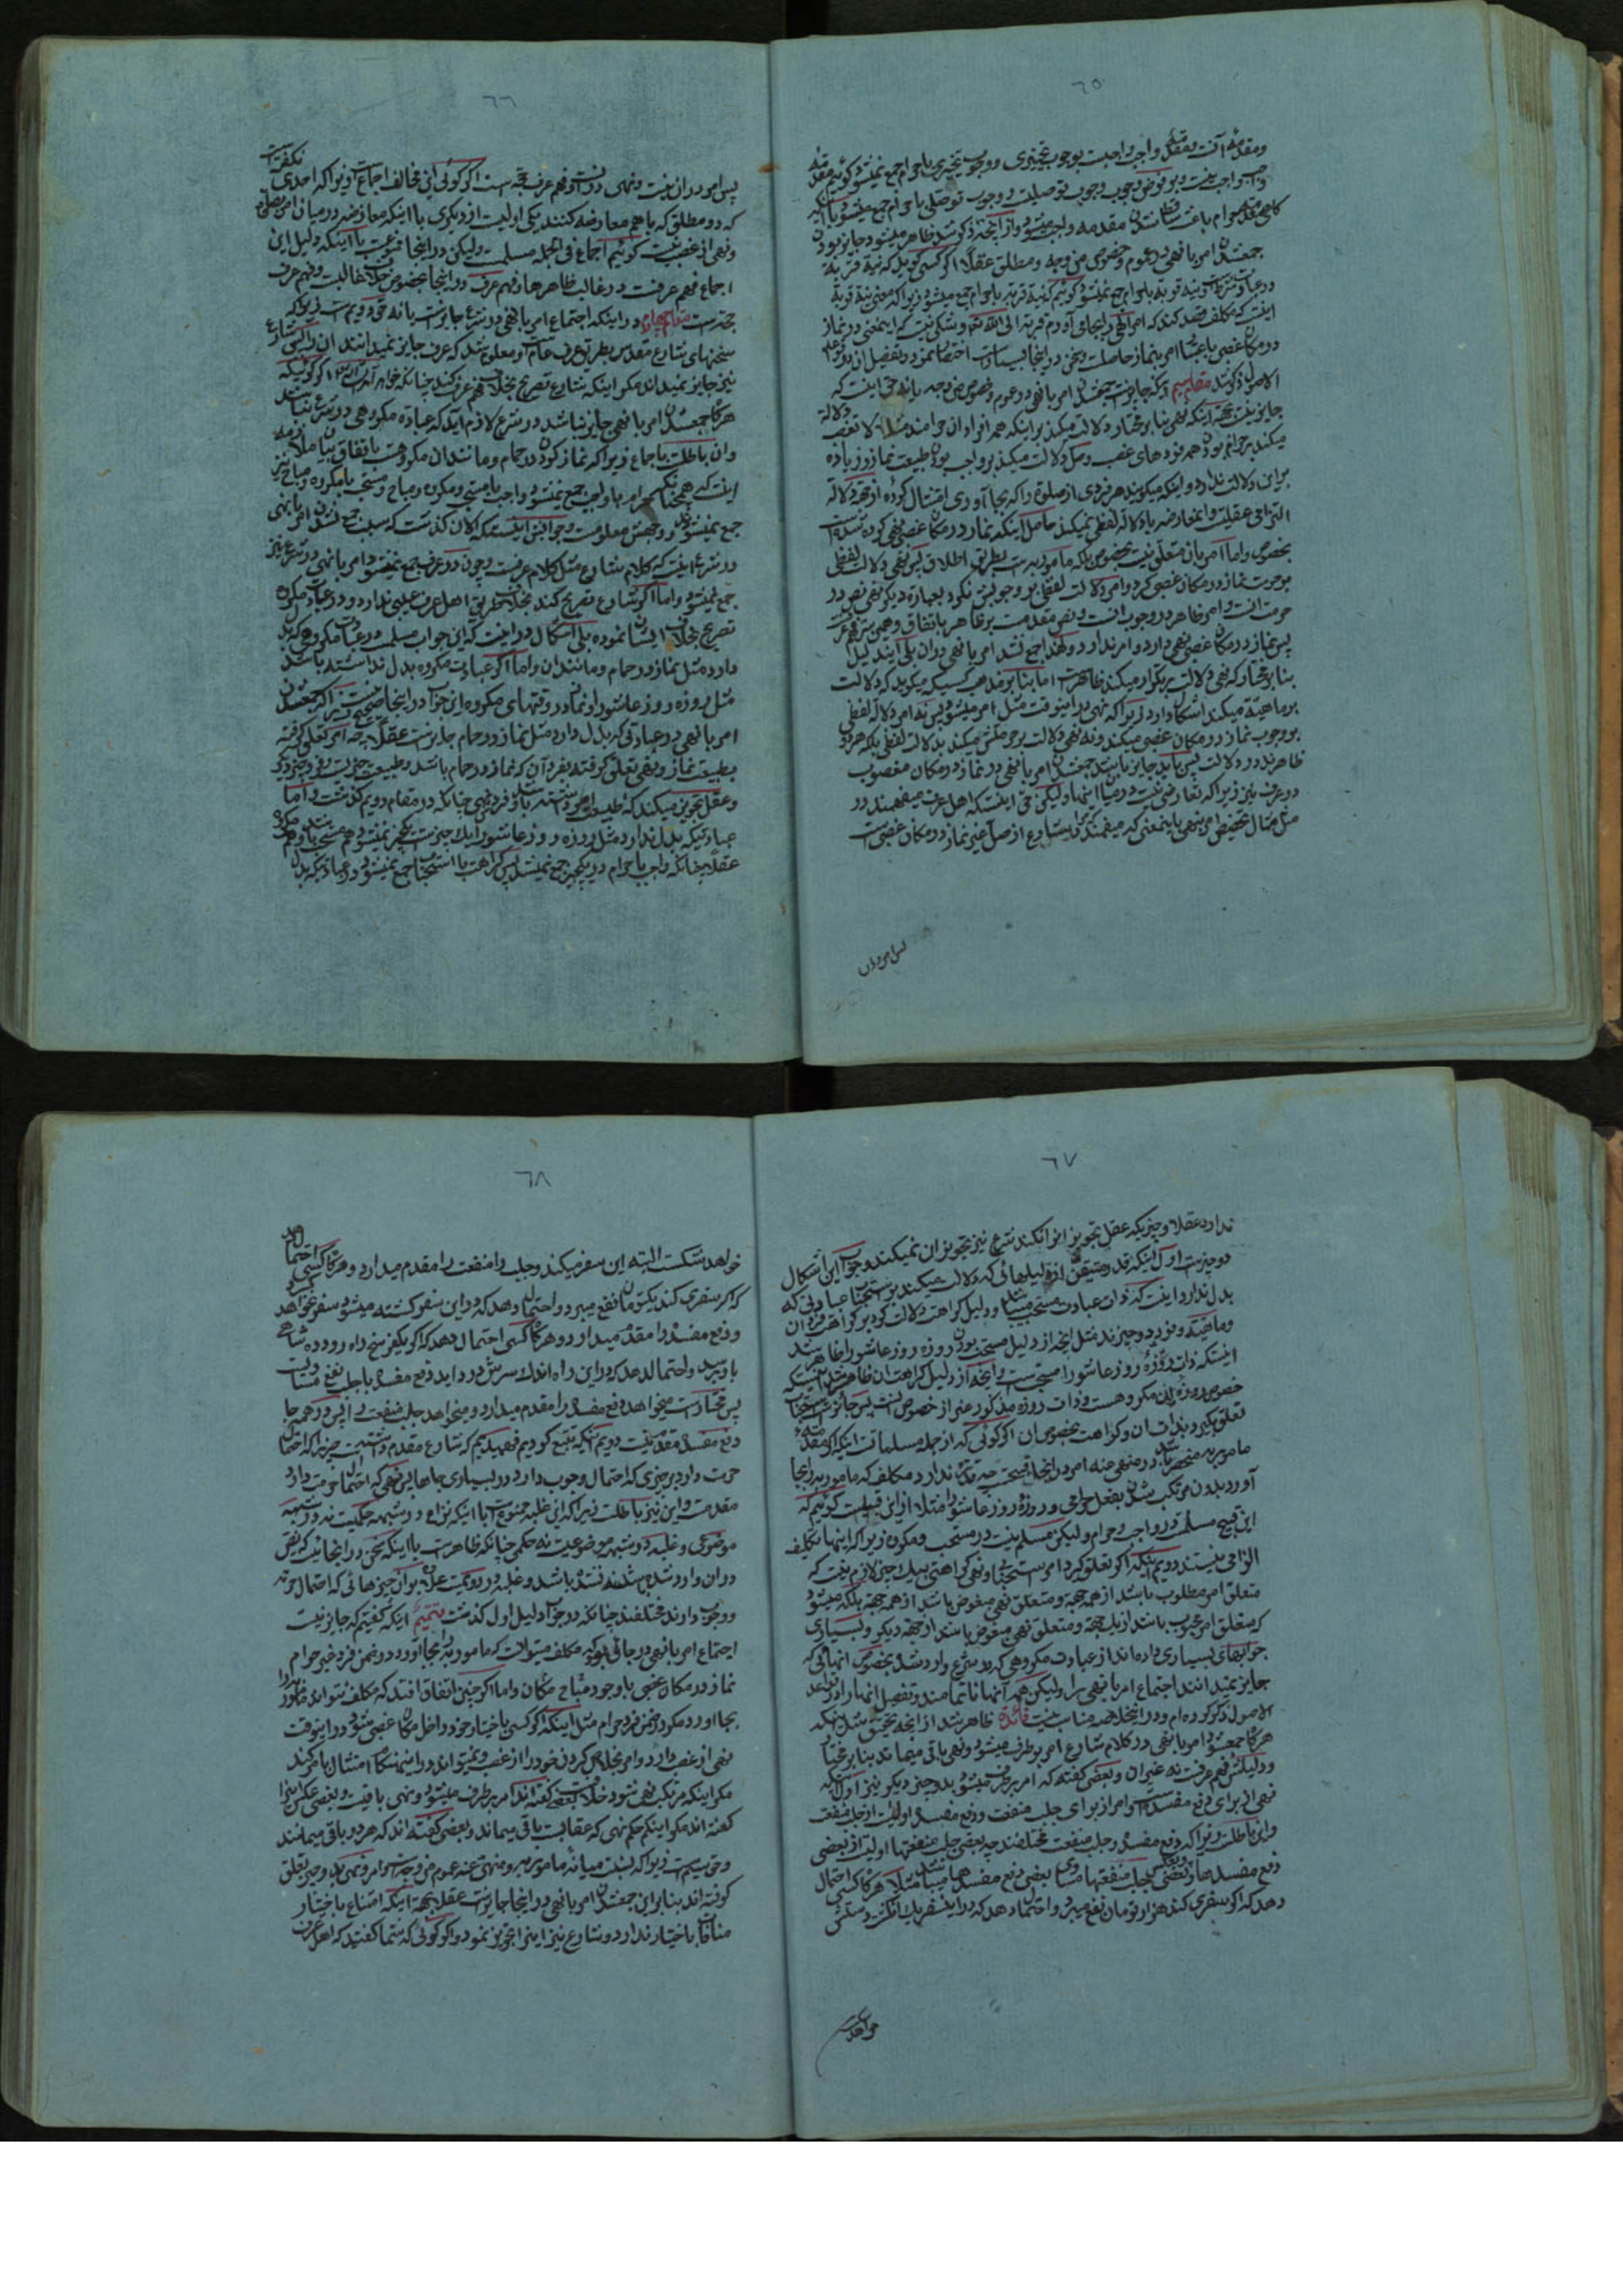 ٦٥
ومقدمه آن واجب است بوجوب تخییری ووجوب تخییری با حرام جمع نمیشود کوئیم مقدمه
واجب واجب نیست وبر فرض وجوب وجوب توصلیت ووجوب توصلی با حرام جمع میشود با اینکه
جمعشدن امر با نهی در عموم وخصوص من وجه ومطلق عقلا اکر کسی کوید که نیة قربة
در عبادت شرط است ونیة قربة با حرام جمع نمیشود کوئیم که نیة قربة با حرام جمع میشود زیرا که معنی نیة قربة
اینست که مکلف قصد کند که
در مکان غصبی باعتبار امر بنماز حاصلست
الاصول ذکر شد مقام سیم اینکه جایز نیست جمعشدن امر با نهی در عموم وخصوص من وجه
جایز نیست بجهة اینکه نهی بنا بر مختار دلالت میکند بر اینکه همه افراد آن حرامند مثلا لا تغصب
میکند بر حرام بودن همه فردهای غصب وصل دلالت میکند بر واجب بودن طبیعت نماز وزیاده
بر این دلالت ندارد واینکه میکویند هر فردی از صلوة را که بجا آوری امتثال کرده
التزامی عقلیت واینمعارضه با دلاله لفظی نمیکند حاصل اینکه نماز در مکان غصبی نهی کرده شده است
بخصوص واما امر بآن متعلق نیست بخصوص بلکه مامور به است بطریق اطلاق پس نهی دلالت لفظی
بر حرمت نماز در مکان غصبی کرد وامر دلالت لفظی بر وجوبش نکرد بعبارة دیکر نهی نص در
حرمت است وامر ظاهر در وجوب است ونص مقدمست بر ظاهر باتفاق
پس نماز در مکان غصبی نهی دارد وامر ندارد
بنا بر مختار که نهی دلالت بر تکرار میکند ظاهر است اما بنا بر مذهب کسیکه میکوید که دلالت
بر ماهیة میکند اشکال دارد زیرا که نهی در اینوقت مثل امر میشود پس نه امر دلالة لفظی
بر وجوب نماز در مکان غصبی میکند ونه نهی دلالت بر حرمتش میکند بدلالت لفظی بلکه هر دو
ظاهرند در دلالت پس باید جایز باشد جمعشدن امر با نهی در نماز در مکان مغصوب
در عرف نیز زیرا که تعارضی نیست در میان اینها ولیکن حق اینست که اهل عرف میفهمند در
مثل مثال تخصیص امر بنهی باینمعنی که میفهمند که مراد شارع از صل غیر نماز در مکان غصبی است
پس امر در ان
٦٦
نکفته است
پس امر در ان نیست ونهی در انست وفهم عرف حجة است اکر کوئی این مخالف اجماع است زیرا که احدی
که دو مطلق که با هم معارضه کنند یکی اولیست از دیکری با اینکه معارضه در میان امر بصلوة
ونهی از غصب نیست کوئیم اجماع فی الجمله مسلمست ولیکن در اینجا ممنوعست با اینکه دلیل این
اجماع فهم عرفست در غالب ظاهرها وفهم عرف در اینجا بخصوص خلاف غالبست وفهم عرف
حجة است مقام چهارم در اینکه اجتماع امر با نهی در شرع جایز است یا نه حق دویم است زیرا که
سخنهای شارع مقدس بطریق عرف عام است ومعلوم شد که عرف جایز نمیدانند ان را پس شارع
نیز جایز نمیداند مکر اینکه شارع تصریح بخلاف فهم عرف کند چنانکه خواهد آمد
هرکاه جمعشدن امر با نهی جایز نباشد در شرع لازم آید که عبادة مکروهی در شرع نباشد
وان باطلست باجماع زیرا که نماز کردن در حمام ومانند ان مکروهست باتفاق بیان ملازمه
اینست که همچنانکه حرام با واجب جمع نمیشود واجب با مستحب ومکروه ومباح ومستحب با مکروه ومباح نیز
جمع نمیشود ووجهش معلومست وجوابش اینستکه الان کذشت که سبب جمع نشدن امر با نهی
در شرع اینست که کلام شارع مثل کلام عرفست وچون در عرف جمع نمیشود امر با نهی در شرع نیز
جمع نمیشود واما اکر شارع تصریح کند بخلاف طریق اهل عرف عیبی ندارد ودر عبادت مکروه
تصریح بخلاف ایشان نموده بلی اشکال در اینست که این جواب مسلمست در عبادت مکروهی که بدل
دارد مثل نماز در حمام ومانند ان واما اکر عبادت مکروه بدل نداشته باشد
مثل روزه روز عاشورا ونماز در وقتهای مکروه این جواب در اینجا صحیح نیست زیرا که جمعشدن
امر با نهی در عبادتی که بدل دارد مثل نماز در حمام جایز است عقلا چه امر تعلق کرفته
بطبیعت نماز ونهی تعلق کرفته بفرد آن که نماز در حمام باشد
وعقل تجویز میکند که چنانکه در مقام دویم کذشت واما
عبادتیکه بدل ندارد مثل روزه روز عاشورا یک چیز است
عقلا چنانکه واجب با حرام در یکچیز جمع نمیشد پس کراهت با استحباب جمع نمیشود در عبادتیکه بدل
٦٧
ندارد عقلا وچیزیکه عقل تجویز انرا نکند شرع نیز تجویز ان نمیکند وجواب این اشکال
دو چیز است اول اینکه قدر متیقن از دلیلهائی که دلالت میکند بر استحباب عبادتی که
بدل ندارد اینست که ذات عبادت مستحب میباشد ودلیل کراهت دلالت کرد بر کراهت فرد ان
وماهیة وفرد دو چیزند مثل انچه از دلیل مستحب بودن روزه روز عاشورا ظاهر میشد
اینستکه ذات روزه روز عاشورا مستحب است وانچه از دلیل کراهت ان ظاهر شد اینستکه
خصوص روزه ان مکروهست وذات روزه مذکور غیر از خصوص انست پس جائز است استحباب
تعلق بکیرد بذات ان وکراهت بخصوص ان اکر کوئی که از جمله مسلمات اینکه اکر مقدمه
مامور به منحصر باشد در منهی عنه امر در اینجا قبیحست چه قدرت ندارد مکلف که مامور به را بجا
آورد بدون مرتکب شدن بفعل حرامی وروزه روز عاشورا مثلا از این قبیلست کوئیم که
این قبیح مسلمست در واجب وحرام ولیکن مسلم نیست در مستحب ومکروه زیرا که اینها تکلیف
الزامی نیستند دویم اینکه اکر تعلق کیرد امر استحبابی ونهی کراهتی بیک چیز لازم نیست که
متعلق امر مطلوب باشد از همه جهة ومتعلق نهی مبغوض باشد از همه جهة بلکه میشود
که متعلق امر محبوب باشد از یک جهة ومتعلق نهی مبغوض باشد از جهة دیکر وبسیاری
جوابهای بسیاری داده اند از عبادت مکروهی که در شرع وارد شده بخصوص انهائی که
جایز نمیدانند اجتماع امر با نهی را ولیکن همه آنها ناتمامند وتفصیل انها را در قواعد
الاصول ذکر کرده ام ودر اینجا فائدة ظاهر شد از انچه تحقیق شد اینکه
هرکاه جمع شود امر با نهی در کلام شارع امر بر طرف میشود ونهی باقی میماند بنا بر مختار
ودلیلش فهم عرفست نه غیر ان وبعضی کفته که امر بر طرف میشود بدو چیز دیکر نیز اول اینکه
نهی از برای دفع مفسده است وامر از برای جلب منفعت ودفع مفسده اولیست از جلب منفعت
واین باطلست زیرا که دفع مفسده وجلب منفعت مختلفند چه بعضی جلب منفعتها اولیست از بعضی
دفع مفسدها وبعضی بعکس وبعضی جلب منفعتها مساوی بعضی دفع مفسدها میباشد مثلا هرکاه کسی احتمال
دهد که اکر سفری کند هزار تومان نفع میبرد واحتمال دهد که در این سفر یک انکشت دستش
خواهد شکست
٦٨
خواهد شکست البته این سفر میکند وجلب منفعت را مقدم میدارد وهرکاه کسی احتمال دهد
که اکر سفری کند یکتومان نفع میبرد واحتمال دهد که در این سفر کشته میشود سفر نخواهد کرد
ودفع مفسده را مقدم میدارد وهرکاه کسی احتمال دهد که اکر یکفرسخ راه رود ده شاهی
باو رسد واحتمال دهد که در این راه اندک سرش درد اید دفع مفسده با جلب نفع مساویست
پس مختار است میخواهد دفع مفسده را مقدم میدارد ومیخواهد جلب منفعت را پس در همه جا
دفع مفسده مقدم نیست دویم آنکه تتبع کردیم فهمیدیم که شارع مقدم داشته است چیزیرا که احتمال
حرمت دارد بر چیزی که احتمال وجوب دارد در بسیاری جاها پس نهی که احتمال حرمت دارد
مقدمست واین نیز باطلست زیرا که این غلبه ممنوع است با اینکه نزاع در شبهه حکمیست نه در شبهه
موضوعی وغلبه در شبهه موضوعیست نه حکمی چنانکه ظاهر است با اینکه سخن در انجائیست که نص
در ان وارد شده باشد وغلبه در
ووجوب دارند مختلفند چنانکه در جواب دلیل اول کذشت تتمیم اینکه کفتیم که جایز نیست
اجتماع امر با نهی در جائی بود که مکلف میتوانست که مامور به را بجا آورد در ضمن فرد غیر حرام
نماز در مکان غصبی با وجود مباح مکان واما اکر چنین اتفاق افتد که مکلف نتواند مامور به را
بجا اورد مکر در ضمن فرد حرام مثل اینکه اکر کسی باختیار خود داخل مکان غصبی شود در اینوقت
نهی از غصب دارد وامر بخلاص کردن خود را از غصب ونمیتواند در اینهنکام امتثال بامر کند
مکر اینکه مرتکب نهی شود خلافست بعضی کفته اند امر بر طرف میشود ونهی باقیست وبعضی عکس انرا
کفته اند مکر اینکه حکم نهی که عقابست باقی میماند وبعضی کفته اند که هر دو باقی میمانند
وحق سیم است زیرا که نسبت میانه مامور به ومنهی عنه عموم من وجه است وامر ونهی بدو چیز تعلق
کرفته اند بنا بر این جمعشدن امر با نهی در اینجا جایز است عقلا بجهة اینکه امتناع باختیار
منافات باختیار ندارد وشارع نیز اینرا تجویز نمود واکر کوئی که شما کفتید که اهل عرف